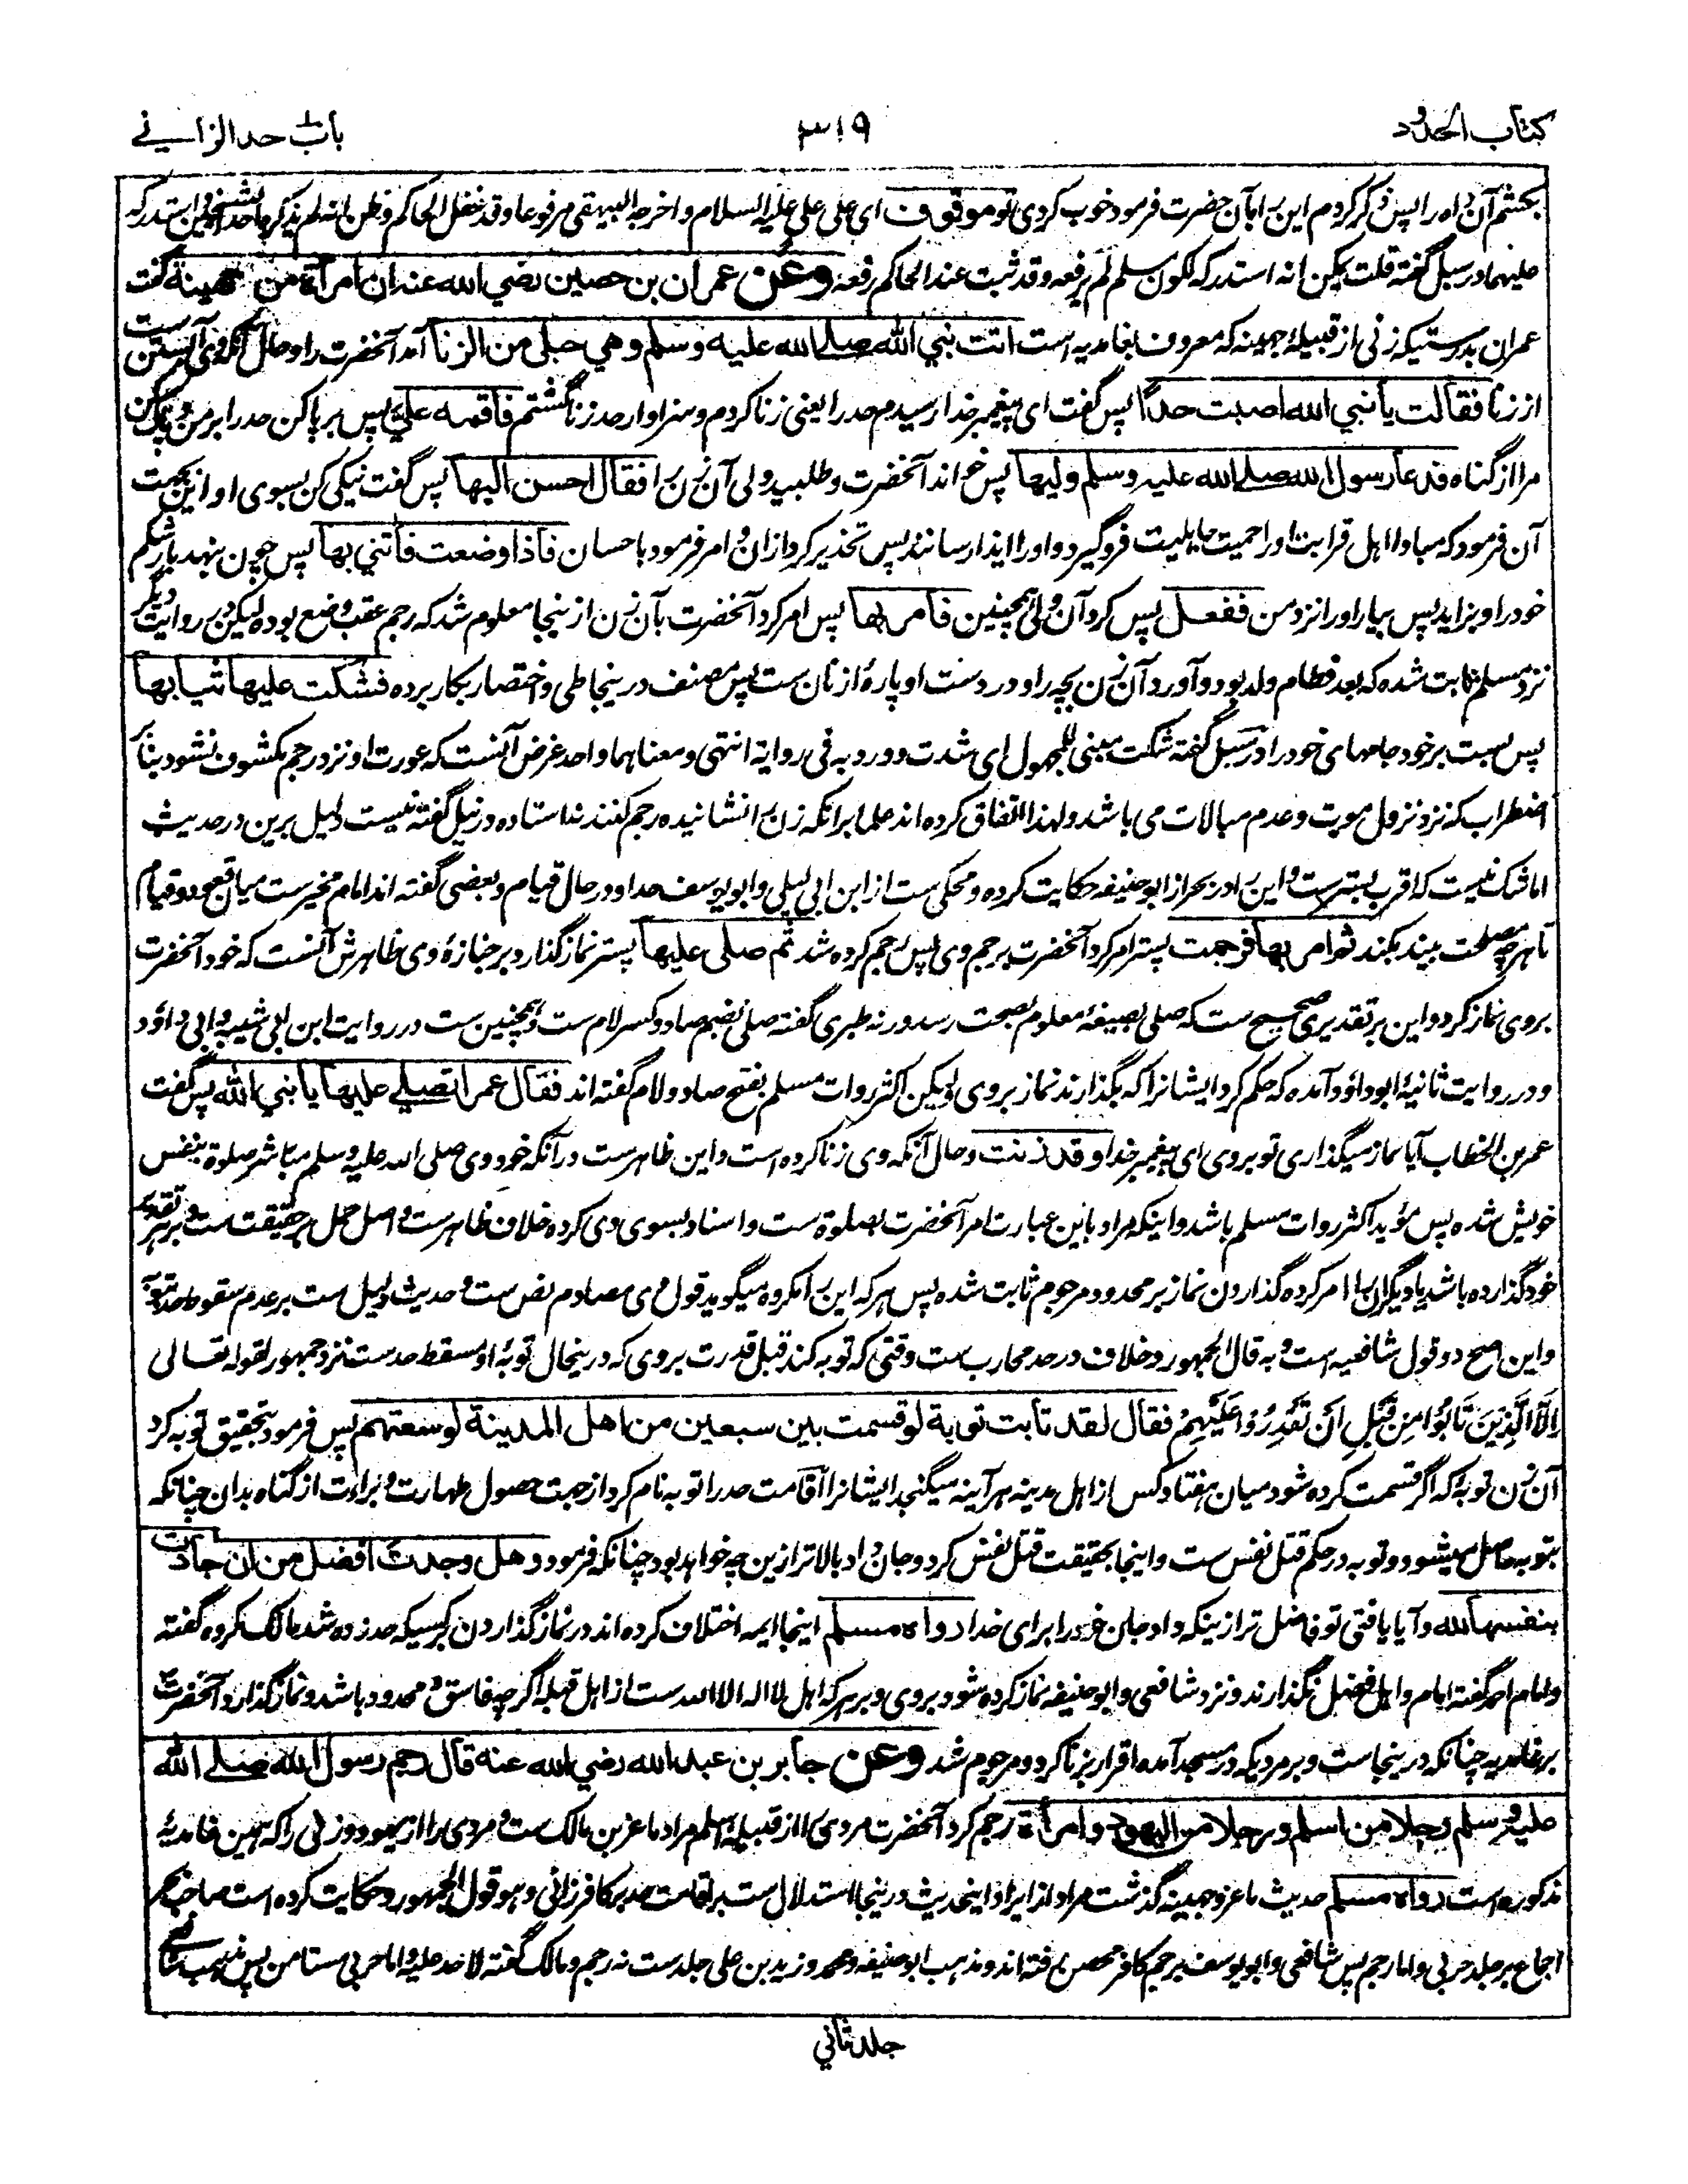 کتاب الحدود ۳۱۹ باب حد الزانے
بکشم آن داه را پس ذکر کردم این را بآن حضرت فرمود خوب کردی تو موقوف ای علی علی علیه السلام و اخرجه البیهقی مرفوعا و قد غفل الحاکم و ظن انه لم یذکره احد الشیخین و استدرکه
علیهما در سبل گفته قلت یمکن انه استدرکه لکون مسلم لم یرفعه و قد ثبت عند الحاکم رفعه وعن عمران بن حصین رضي الله عنه ان امرأة من جهینة گفت
عمران بدرستیکه زنی از قبیلهٔ جهینه که معروف بغامدیه است اتت نبي الله صلے الله علیه وسلم وهي حبلی من الزنا آمد آنحضرت را و حال آنکه وی آبستن ست
از زنا فقالت یا نبي الله اصبت حدًّا پس گفت ای پیغمبر خدا رسیدم حد را یعنی زنا کردم و سزاوار حد زنا گشتم فاقمه علي پس برپا کن حد را بر من و پاک کن
مرا از گناه فدعا رسول الله صلے الله علیه وسلم ولیها پس خواند آنحضرت و طلبید ولی آن زن را فقال احسن الیها پس گفت نیکی کن بسوی او ازین جهت
آن فرمود که مبادا اهل قرابت او را حمیت جاهلیت فرو گیرد و او را ایذا رسانند پس تحذیر کرد ازان و امر فرمود باحسان فاذا وضعت فأتني بها پس چون بنهد بار شکم
خود را و بزاید پس بیار او را نزد من ففعل پس کرد آن ولی همچنین فامر بها پس امر کرد آنحضرت بآن زن ازینجا معلوم شد که رجم عقب وضع بوده لیکن در روایت دیگر
نزد مسلم ثابت شده که بعد فطام ولد بود و آورد آن زن بچه را و در دست او پارهٔ از نان ست پس مصنف درینجا طی و اختصار بکار برده فشکت علیها ثیابها
پس بست بر خود جامهای خود را در سبل گفته شکت مبنی للمجهول ای شدت و ورد به فی روایة انتهی و معناهما واحد غرض آنست که عورت او نزد رجم مکشوف نشود بنا بر
اضطراب که نزد نزول موت و عدم مبالات می باشد و لهذا اتفاق کرده اند علما بر آنکه زن را نشانیده رجم کنند نه استاده و در نیل گفته نیست دلیل برین در حدیث
اما شک نیست که اقرب بستر ست و این را در بحر از ابو حنیفه حکایت کرده و محکی ست از ابن ابی لیلی و ابو یوسف حد او در حال قیام و بعضی گفته اند امام مخیر ست میان قعود و قیام
تا هر چه مصلحت بیند بکند ثم امر بها فرجمت پستر امر کرد آنحضرت برجم وی پس رجم کرده شد ثم صلی علیها پستر نماز گذارد بر جنازهٔ وی ظاهرش آنست که خود آنحضرت
بروی نماز کرد و این بر تقدیری صحیح ست که صلی بصیغهٔ معلوم بصحت رسد ورنه طبری گفته صلی بضم صاد و کسر لام ست و همچنین ست در روایت ابن ابی شیبه و ابی داؤد
و در روایت ثانیهٔ ابو داؤد آمده که حکم کرد ایشانرا که بگذارند نماز بروی و لیکن اکثر روات مسلم بفتح صاد و لام گفته اند فقال عمر اتصلے علیها یا نبي الله پس گفت
عمر بن الخطاب آیا نماز میگذاری تو بروی ای پیغمبر خدا وقد زنت و حال آنکه وی زنا کرده است و این ظاهر ست در آنکه خود وی صلی الله علیه وسلم مباشر صلوة بنفس
خویش شده پس مؤید اکثر روات مسلم باشد و اینکه مراد باین عبارت امر آنحضرت بصلوة ست و اسناد بسوی وی کرده خلاف ظاهر ست و اصل حمل بر حقیقت ست و بر هر تقدیر
خود گذارده باشد یا دیگران را امر کرده گذاردن نماز بر محدود مرجوم ثابت شده پس هر که این را مکروه میگوید قول وی مصادم نص ست و حدیث دلیل ست بر عدم سقوط حد بتوبه
و این اصح دو قول شافعیه است و به قال الجمهور و خلاف در حد محارب ست وقتی که توبه کند قبل قدرت بروی که درینحال توبهٔ او مسقط حد ست نزد جمهور لقوله تعالی
اِلَّا الَّذِیْنَ تَابُوْا مِنْ قَبْلِ اَنْ تَقْدِرُوْا عَلَیْهِمْ فقال لقد تابت توبة لو قسمت بین سبعین من اهل المدینة لوسعتهم پس فرمود بتحقیق توبه کرد
آن زن توبهٔ که اگر قسمت کرده شود میان هفتاد کس از اهل مدینه هر آینه میگنجد ایشانرا اقامت حد را توبه نام کرد از جهت حصول طهارت و براءت از گناه بدان چنانکه
بتوبه حاصل میشود و توبه در حکم قتل نفس ست و اینجا بحقیقت قتل نفس کرد و جان داد بالاتر ازین چه خواهد بود چنانکه فرمود وهل وجدت افضل من ان جادت
بنفسها لله و آیا یافتی تو فاضل تر ازینکه داد جان خود را برای خدا رواه مسلم اینجا ایمه اختلاف کرده اند در نماز گذاردن بر کسیکه حد زده شد مالک مکروه گفته
و امام احمد گفته امام و اهل فضل نگذارند و نزد شافعی و ابو حنیفه نماز کرده شود بروی و بر هر که اهل لا اله الا الله ست از اهل قبله اگر چه فاسق و محدود باشد و نماز گذارد آنحضرت
بر غامدیه چنانکه درینجاست و بر مردیکه در مسجد آمده اقرار بزنا کرد و مرجوم شد وعن جابر بن عبد الله رضي الله عنه قال رجم رسول الله صلے الله
علیه وسلم رجلا من اسلم ورجلا من الیهود وامرأة رجم کرد آنحضرت مردی را از قبیلهٔ اسلم مراد ماعز بن مالک ست و مردی را از یهود و زنی را که همین غامدیهٔ
مذکوره است رواه مسلم حدیث ماعز و جهینه گذشت مراد از ایراد اینحدیث درینجا استدلال ست بر اقامت حد بر کافر زانی و هو قول الجمهور و حکایت کرده است صاحب بحر
اجماع بر جلد حربی و اما رجم پس شافعی و ابو یوسف برجم کافر محصن رفته اند و مذهب ابو حنیفه و محمد و زید بن علی جلد ست نه رجم و مالک گفته لا حد علیه و اما حربی مستامن پس مذهب شافعی
جلد ثاني